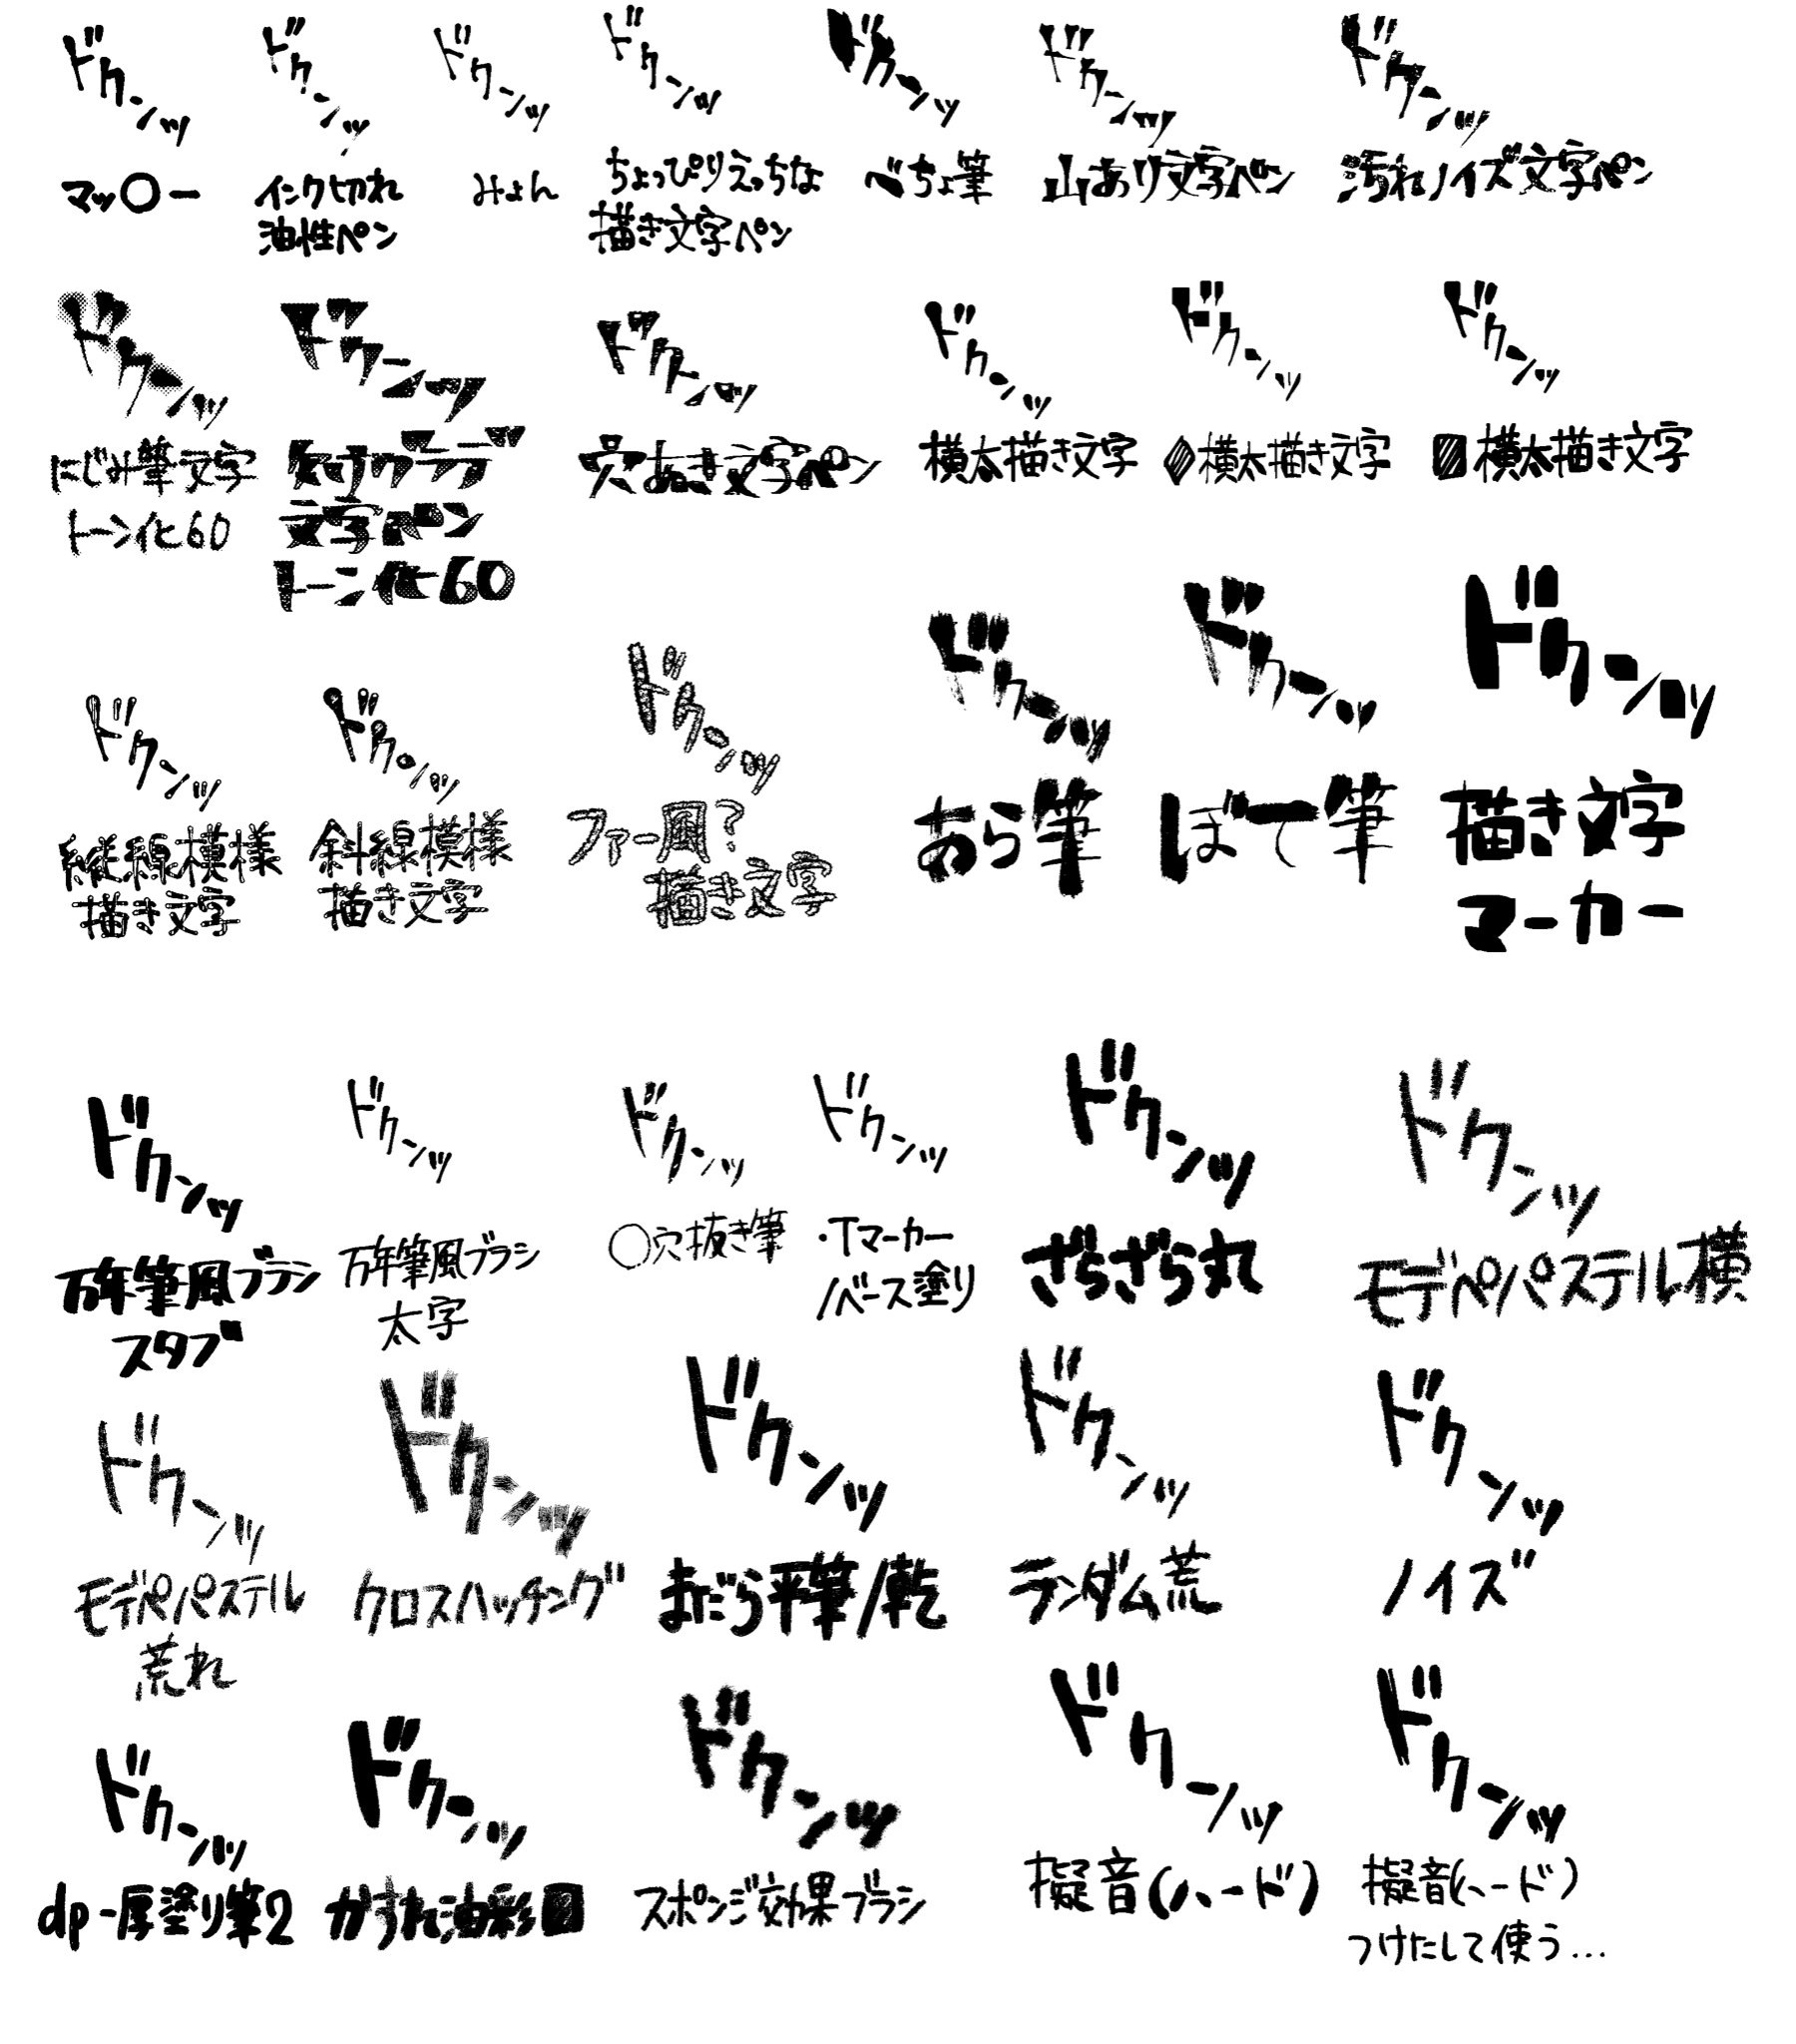 ドクンッ
マッ〇ー
ドクンッ
インク切れ
油性ペン
ドクンッ
みょん
ドクンッ
ちょっぴりえっちな
描き文字ペン
ドクンッ
べちょ筆
ドクンッ
山あり文字ペン
ドクンッ
汚れノイズ文字ペン
ドクンッ
にじみ筆文字
トーン化60
ドクンッ
欠けグラデ
文字ペン
トーン化60
ドクンッ
穴あき文字ペン
ドクンッ
横太描き文字
ドクンッ
横太描き文字
ドクンッ
横太描き文字
ドクンッ
縦線模様
描き文字
ドクンッ
斜線模様
描き文字
ドクンッ
ファー風?
描き文字
ドクンッ
あら筆
ドクンッ
ぼて筆
ドクンッ
描き文字
マーカー
ドクンッ
万年筆風ブラシ
スタブ
ドクンッ
万年筆風ブラシ
太字
ドクンッ
〇穴抜き筆
ドクンッ
・Tマーカー
/ベース塗り
ドクンッ
ざらざら丸
ドクンッ
モデペパステル横
ドクンッ
モデペパステル
荒れ
ドクンッ
クロスハッチング
ドクンッ
まだら平筆/乾
ドクンッ
ランダム荒
ドクンッ
ノイズ
ドクンッ
dp-厚塗り筆2
ドクンッ
かすれ油彩
ドクンッ
スポンジ効果ブラシ
ドクンッ
擬音(ハード)
ドクンッ
擬音(ハード)
つけたして使う…